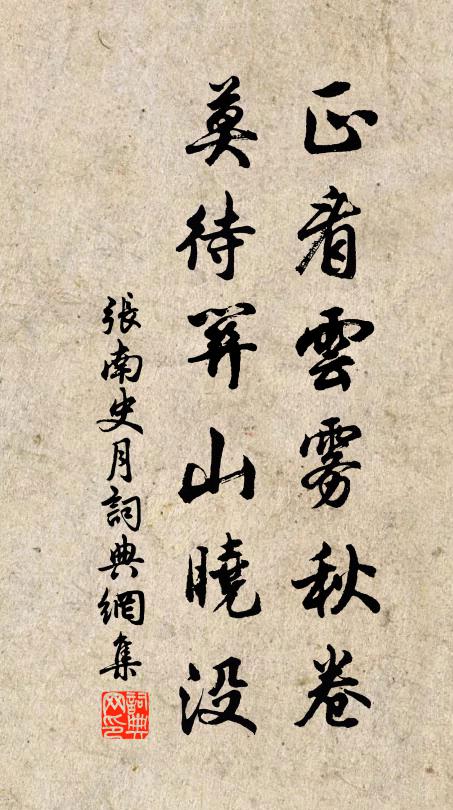 正看雲霧秋卷
莫待關山曉没
張南史月詞典網集
詞典网印